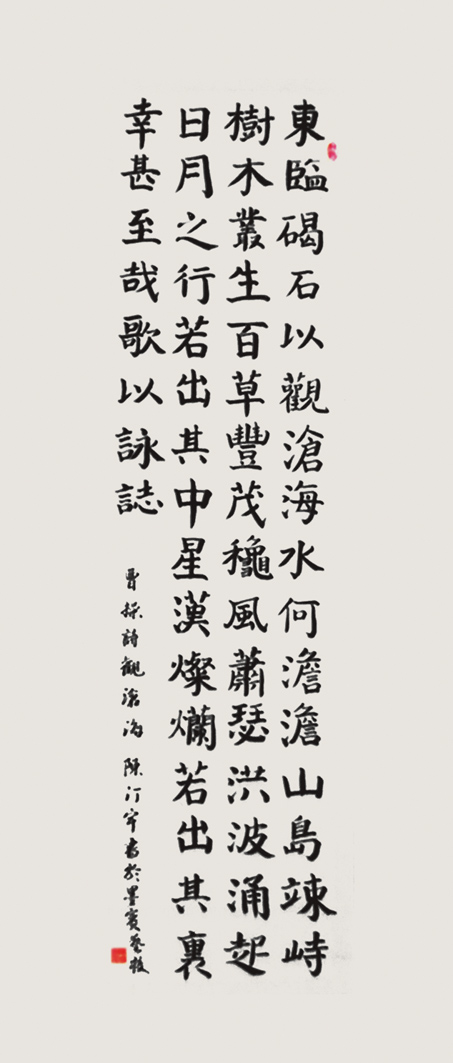 東臨碣石以觀滄海水何澹澹山島竦峙
樹木叢生百草豐茂穐風蕭瑟洪波涌起
日月之行若出其中星漢燦爛若出其裏
幸甚至哉歌以詠誌
曹操詩觀滄海 陳汀書於墨寶藝校